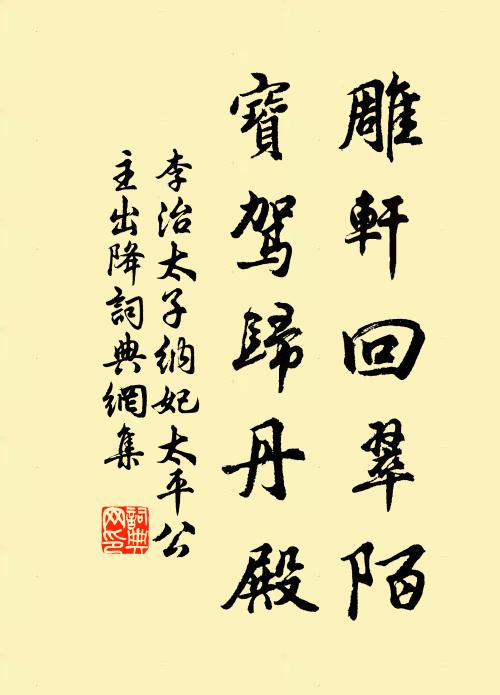 雕軒回翠陌
寶駕歸丹殿
李治太子納妃太平公
主出降詞典網集
詞典
网印